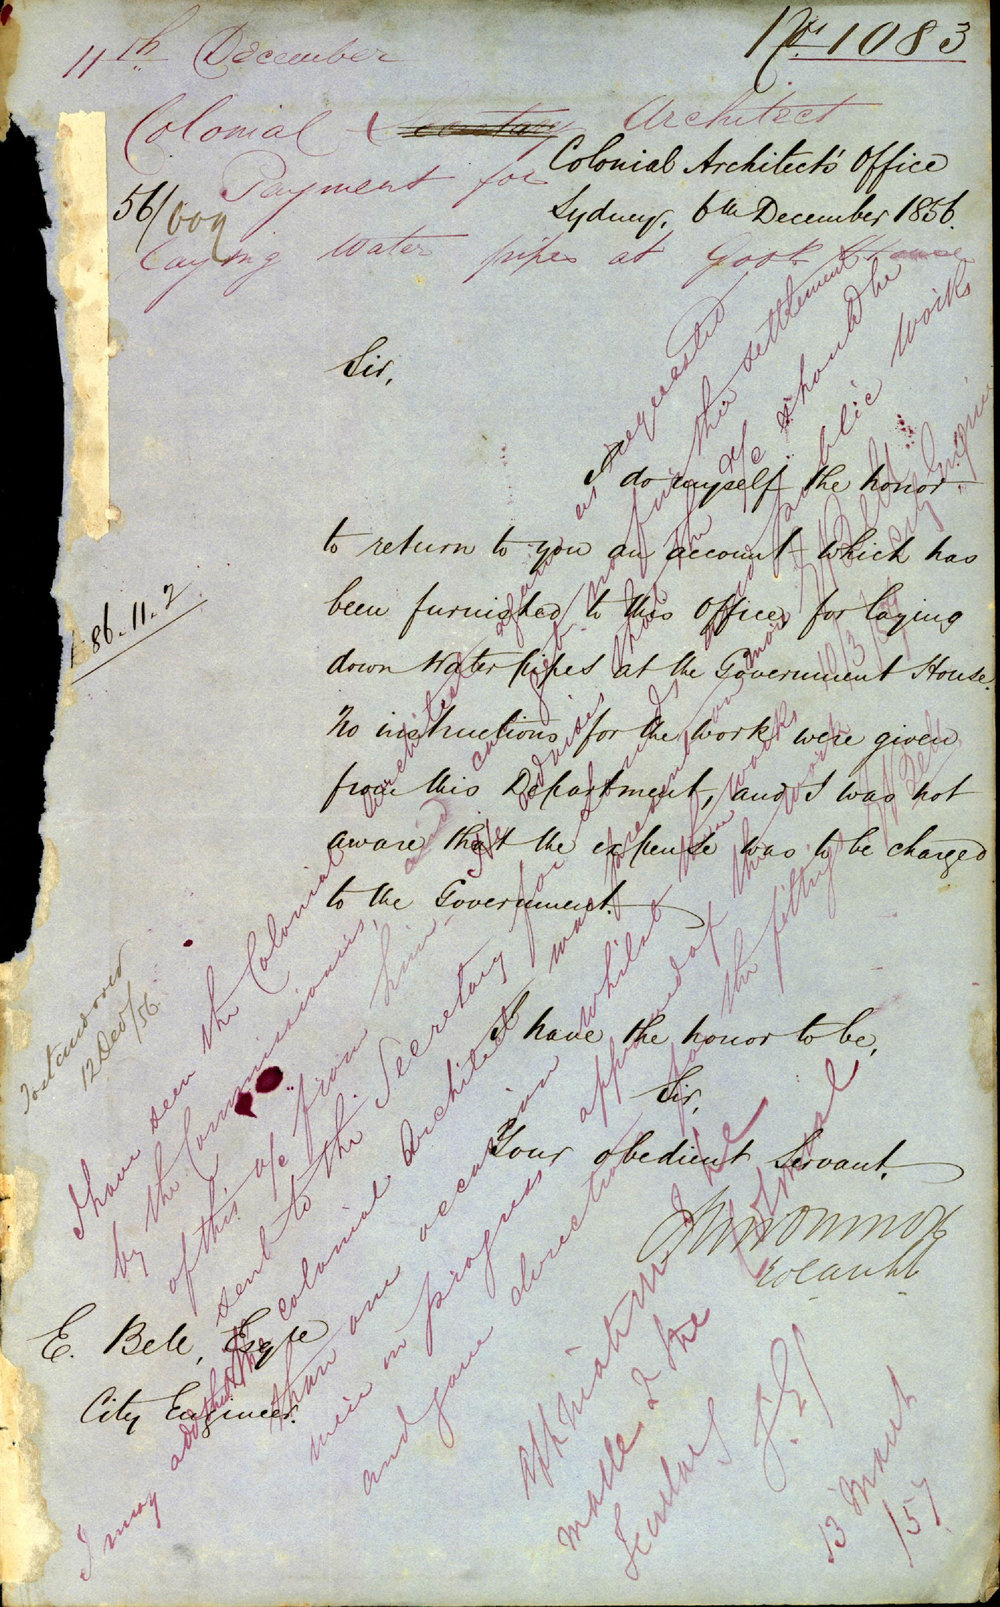 11th December
No 1083
Colonial Secretary Architect
Payment for
Laying Water pipes at Govt House
Colonial Architect's Office
Sydney, 6th December 1856.
56/
Sir,
I do myself the honor
to return to you an account which has
been furnished to this Office, for laying
down Water pipes at the Government House.
No instructions for the work were given
from this Department, and I was not
aware that the expense was to be charged
to the Government.
I have the honor to be,
Sir,
Your obedient Servant.
E. Bell, Esqre
City Engineer.
£86.11.2
12 Decr/56
I have seen the Colonial Architect as requested
by the Commissioners, and cannot get
of this a/c from him. He advises that the a/c should be
sent to the Secretary for Lands and public works
I may add that the Colonial Architect was present on more
than one occasion whilst the works
were in progress approved of the work
and gave directions for the fitting
W Bell
City Engineer
11/3/57
13 March
/57